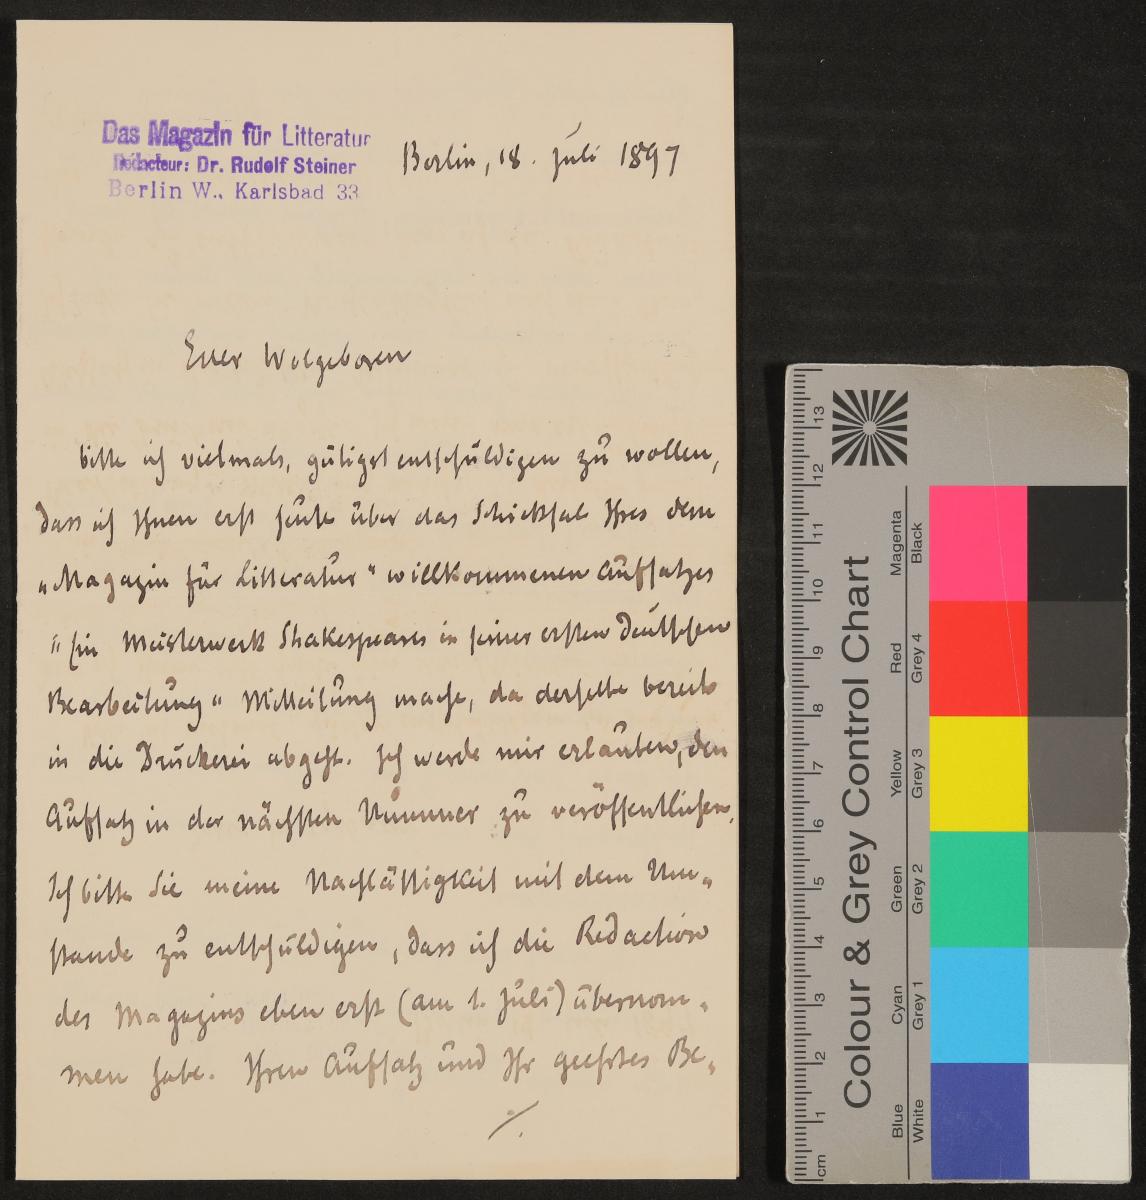 Das Magazin für Litteratur
Redacteur: Dr. Rudolf Steiner
Berlin W., Karlsbad 33
Berlin, 18. Juli 1897
Euer Wolgeboren
bitte ich vielmals, gütigst entschüldigen zu wollen,
dass ich Ihnen erst heute über das Schicksal Ihres dem
„Magazin für Litteratur“ willkommenen Aufsatzes
„Ein Meisterwerk Shakespeares in seiner ersten deutschen
Bearbeitung“ Mitteilung mache, da derselbe bereits
in die Druckerei abgeht. Ich werde mir erlauben, den
Aufsatz in der nächsten Nummer zu veröffentlichen.
Ich bitte Sie meine Nachlässigkeit mit dem Um-
stande zu entschuldigen, dass ich die Redaction
des Magazins eben erst (am 1. Juli) übernom-
men habe. Ihren Aufsatz und Ihr geehrtes Be-
./.
Colour & Grey Control Chart
Blue Cyan Green Yellow Red Magenta
White Grey 1 Grey 2 Grey 3 Grey 4 Black
cm 1 2 3 4 5 6 7 8 9 10 11 12 13